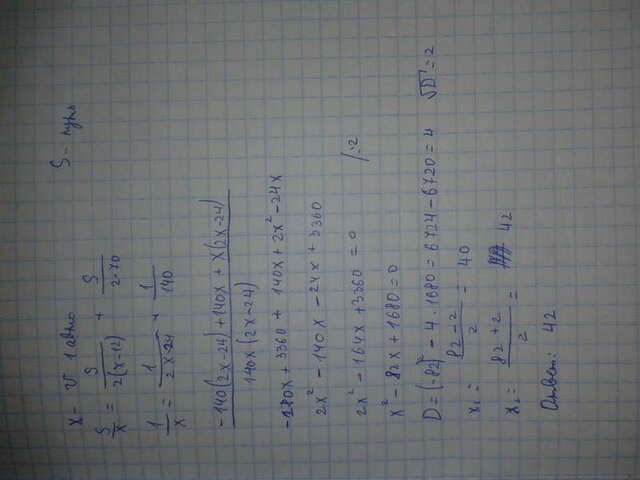 x - v 1 авто S - путь
S/x = S/2(x-12) + S/2·70
1/x = 1/2x-24 + 1/140
-140(2x-24)+140x+x(2x-24) / 140x(2x-24)
-280x+3360+140x+2x²-24x
2x²-140x-24x+3360
2x²-164x+3360=0 /:2
x²-82x+1680=0
D=(-82)²-4·1680=6724-6720=4 √D=2
x₁= 82-2/2 = 40
x₂= 82+2/2 = 42
Ответ: 42